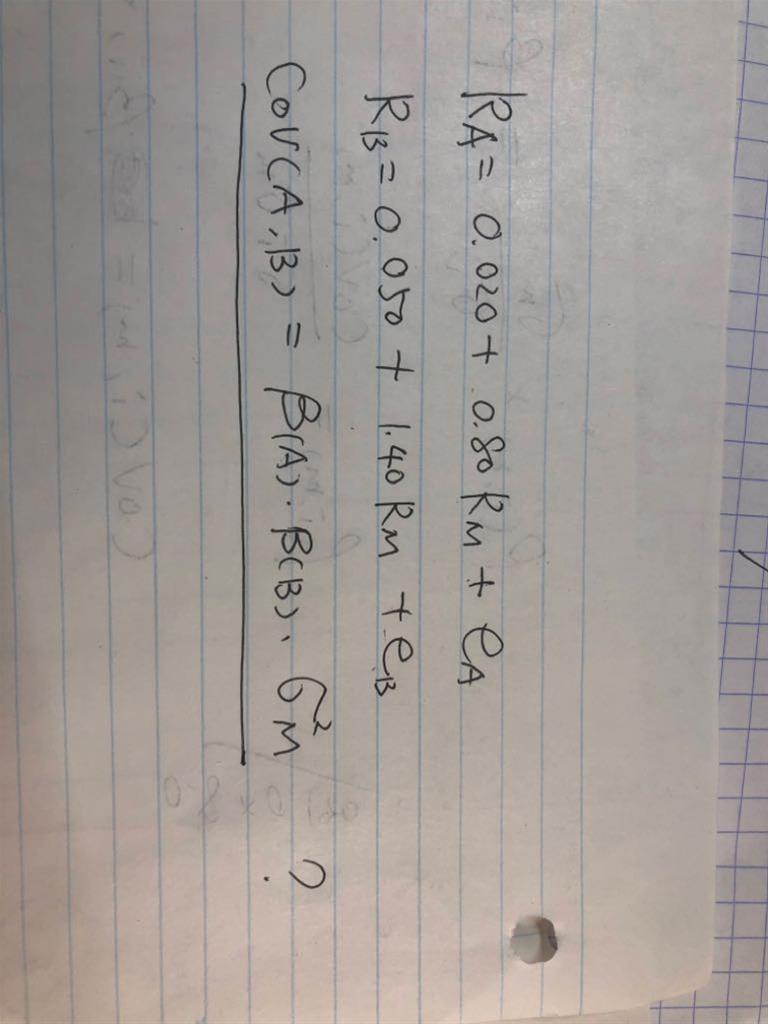 RA = 0.020 + 0.80 RM + eA
RB = 0.050 + 1.40 RM + eB
Cov(A,B) = β(A)·β(B)·σ²M ?